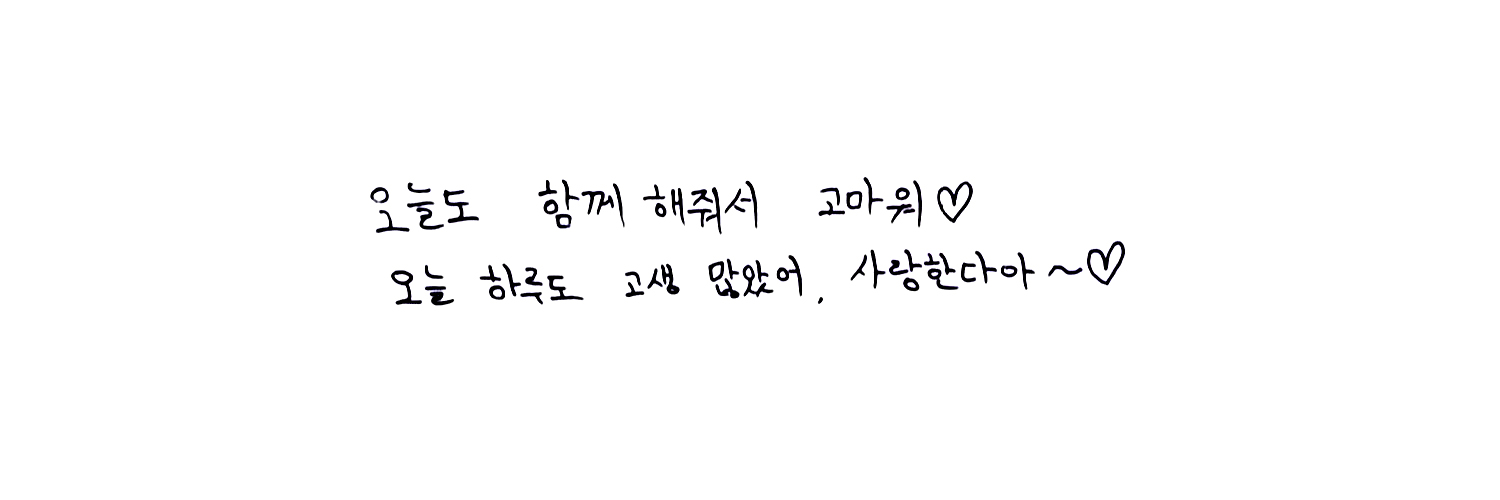 오늘도 함께 해줘서 고마워♡
오늘 하루도 고생 많았어, 사랑한다아~♡